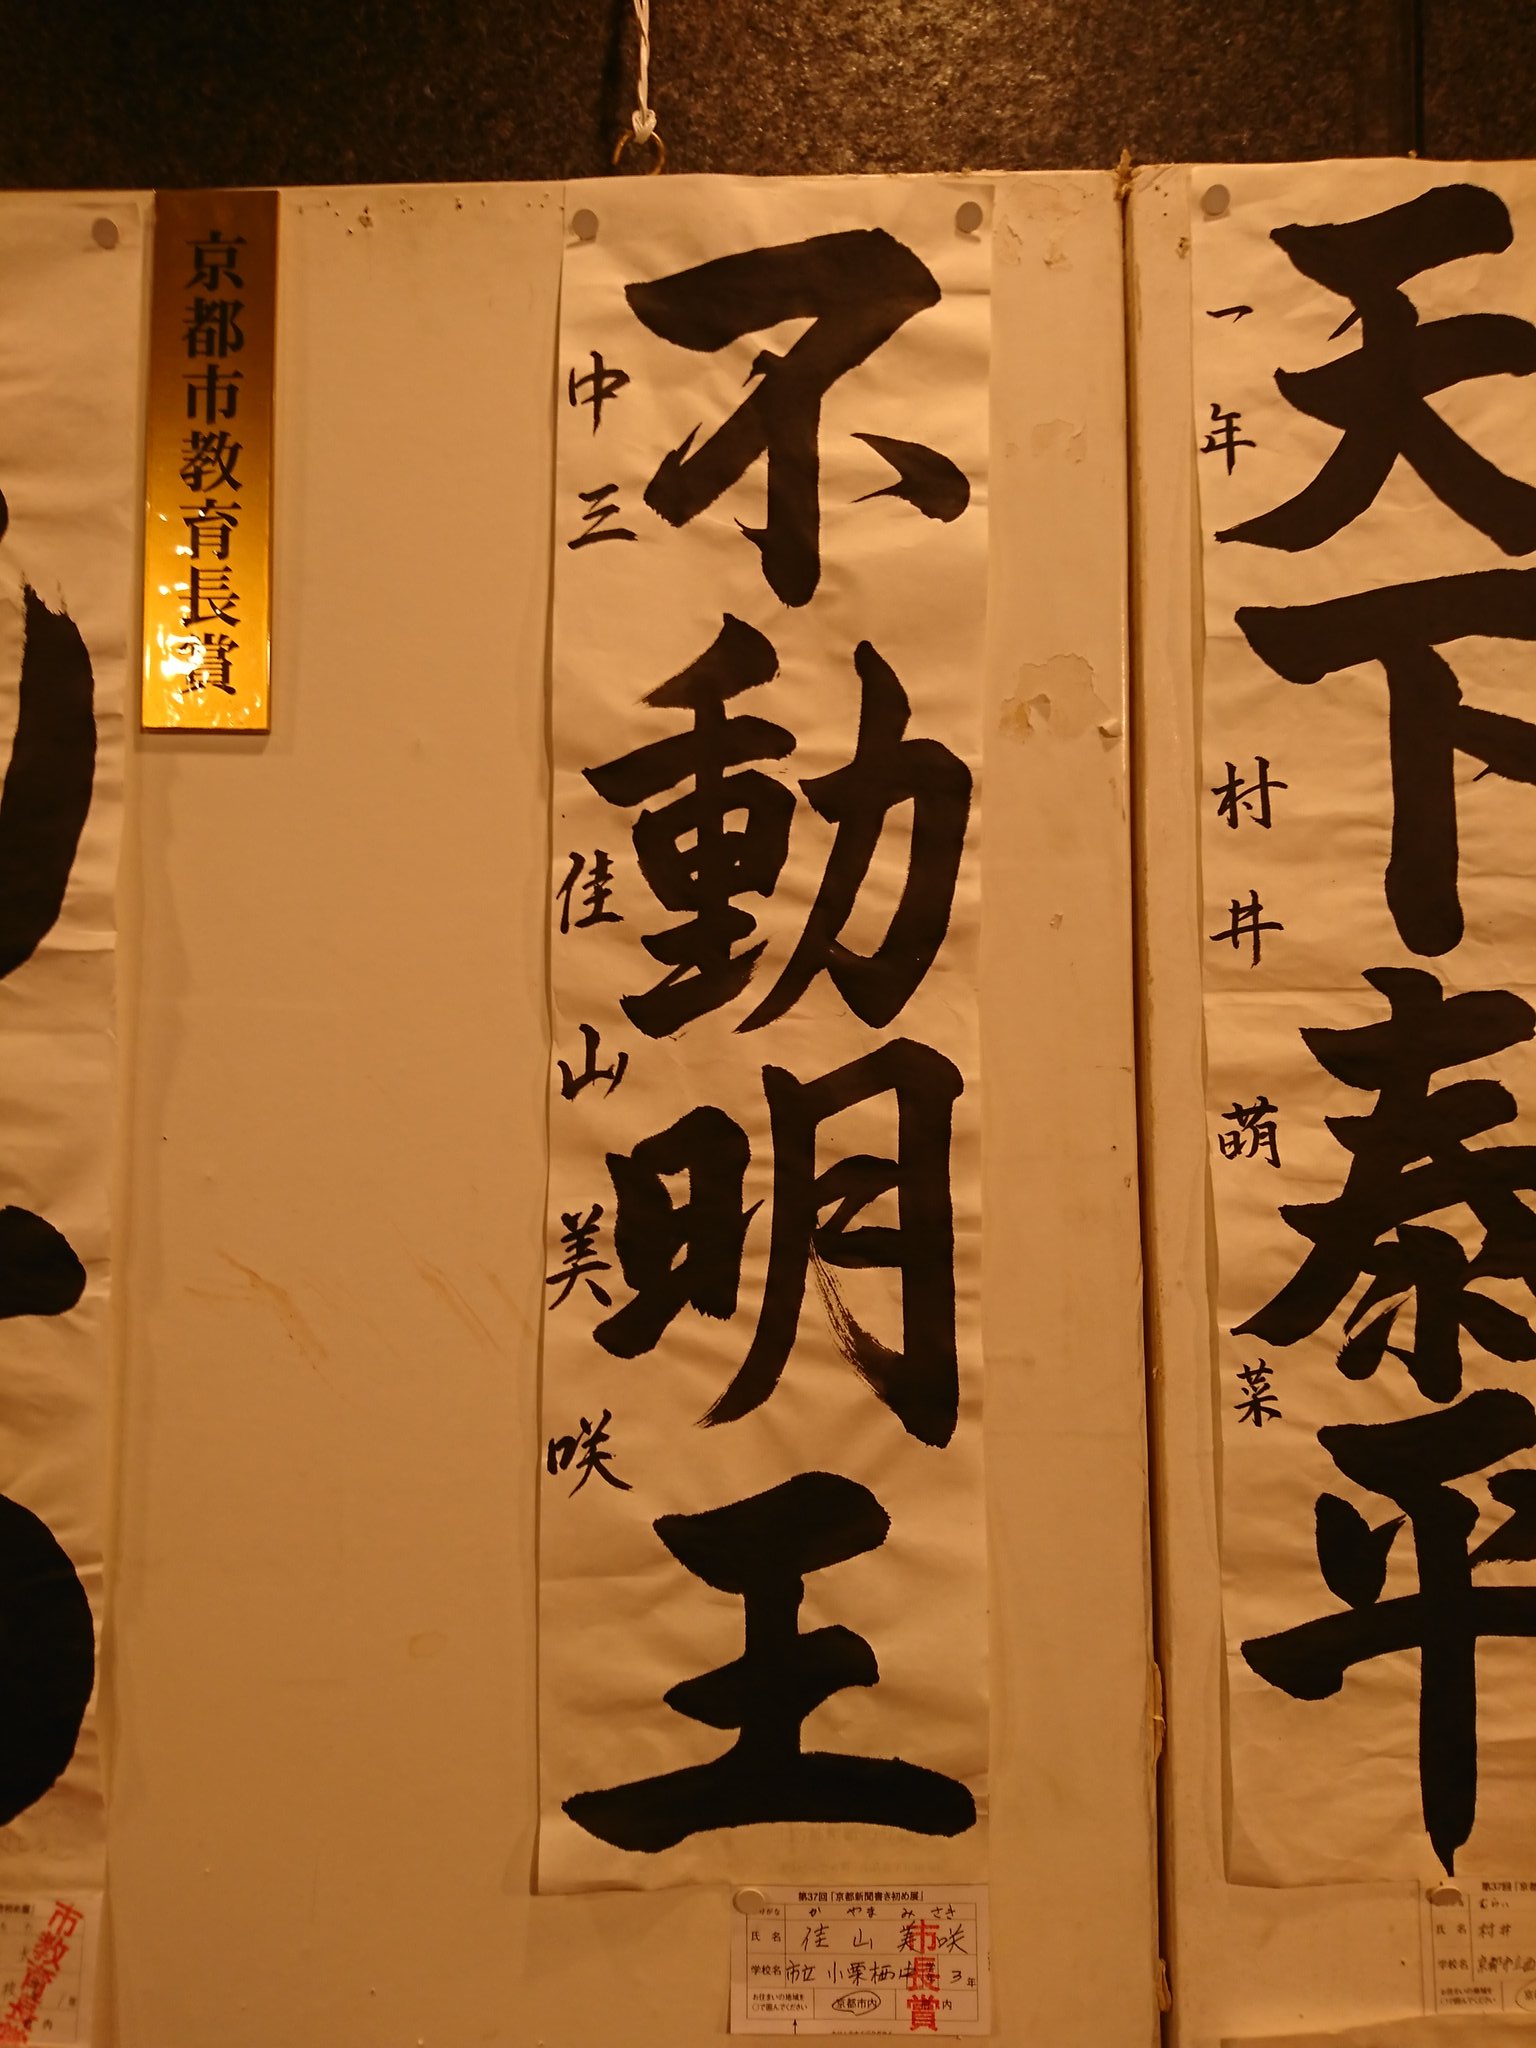 天下泰平
一年 村井 萌菜
不動明王
中三 佳山美咲
京都市教育長賞
第37回「京都新聞書き初め展」
かやま みさき
氏名 佳山美咲
学校名 市立 小栗栖中 3年
お住まいの地域を
○で囲んでください
京都市内
市長賞
第37回「京都
氏名 村井
学校名
お住まいの地域を
○で囲んでください
市教育長賞